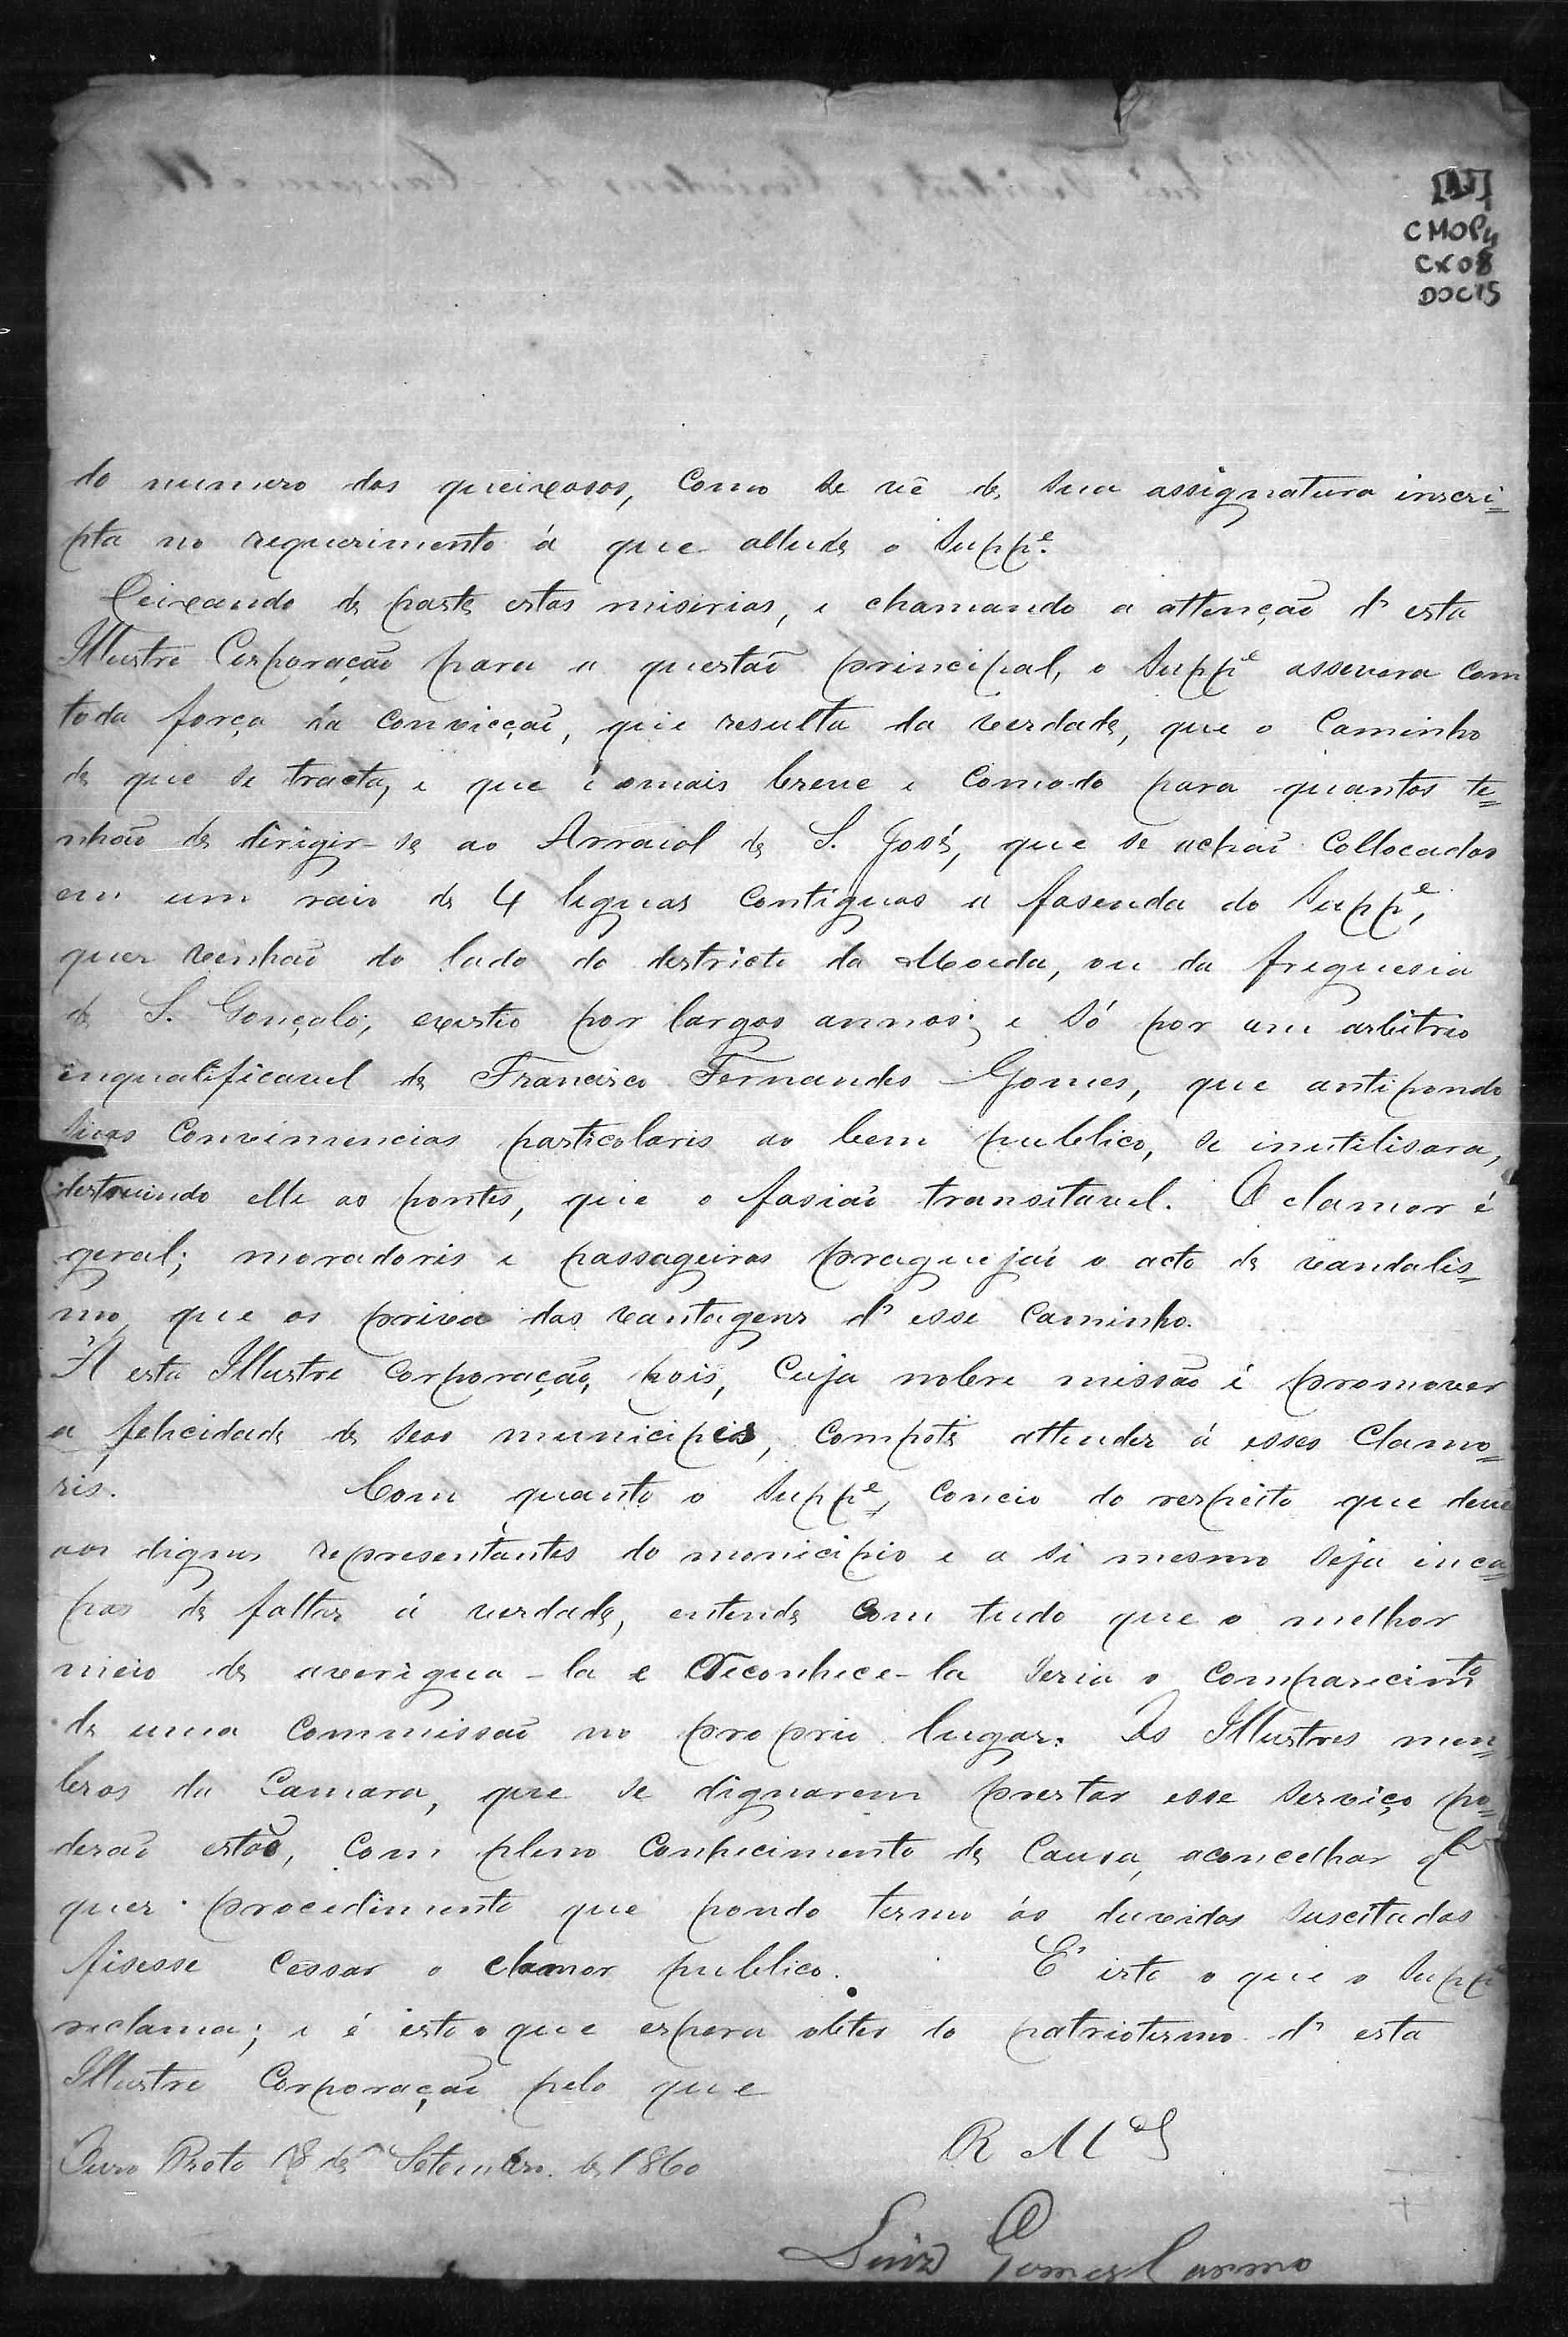 CMOP4
CX08
DOC15
do numero dos queixosos, como se vê de sua assignatura inscri=
pta no requerimento á que allude o Supp.e
Deixando de parte estas miserias, e chamando a attenção d'esta
Illustre Corporação para a questão principal, o Supp.e assevera com
toda força da convicção, que resulta da verdade, que o Caminho
de que se tracta, e que é o mais breve e Comodo para quantos te=
nhão de dirigir-se ao Arraial de S. José, que se achão Collocados
em um raio de 4 leguas Contiguas a fasenda do Supp.e,
quer venhão do lado do destricto da Moeda, ou da freguesia
de S. Gonçalo, existio por largos annos; e só por um arbitrio
inqualificavel de Francisco Fernandes Gomes, que antipondo
suas Conviniencias particolaris ao bem publico, se inutilisara,
destruindo elle as pontes, que o fasião transitavel. O clamor é
geral; moradoris e passageiros praguejão o acto de vandalis=
mo que os priva das vantagens d'esse Caminho.
A' esta Illustre Corporação, pois, Cuja nobre missão é promover
a felicidade de seos municipes, Compete attender á esses Clamo=
ris. Com quanto o Supp.e, Concio do respeito que deve
aos dignos representantes do monicipio e a si mesmo seja inca=
pas de faltar á verdade, entende Com tudo que o melhor
meio de averigua-la e Reconhece-la seria o Comparecimto
de uma Commissão no proprio lugar. Os Illustres mem=
bros da Camara, que se dignarem prestar esse serviço po=
derão então, Com pleno Conhecimento de Causa, aconcelhar ql
quer procedimento que pondo termo ás duvidas suscitadas
fisesse Cessar o clamor publico. E' isto o que o Supp.e
reclama; e é isto o que espera obter do patriotismo d'esta
Illustre Corporação pelo que
R Mce
Ouro Preto 18 de Setembro de 1860
Luiz Gomes Carmo